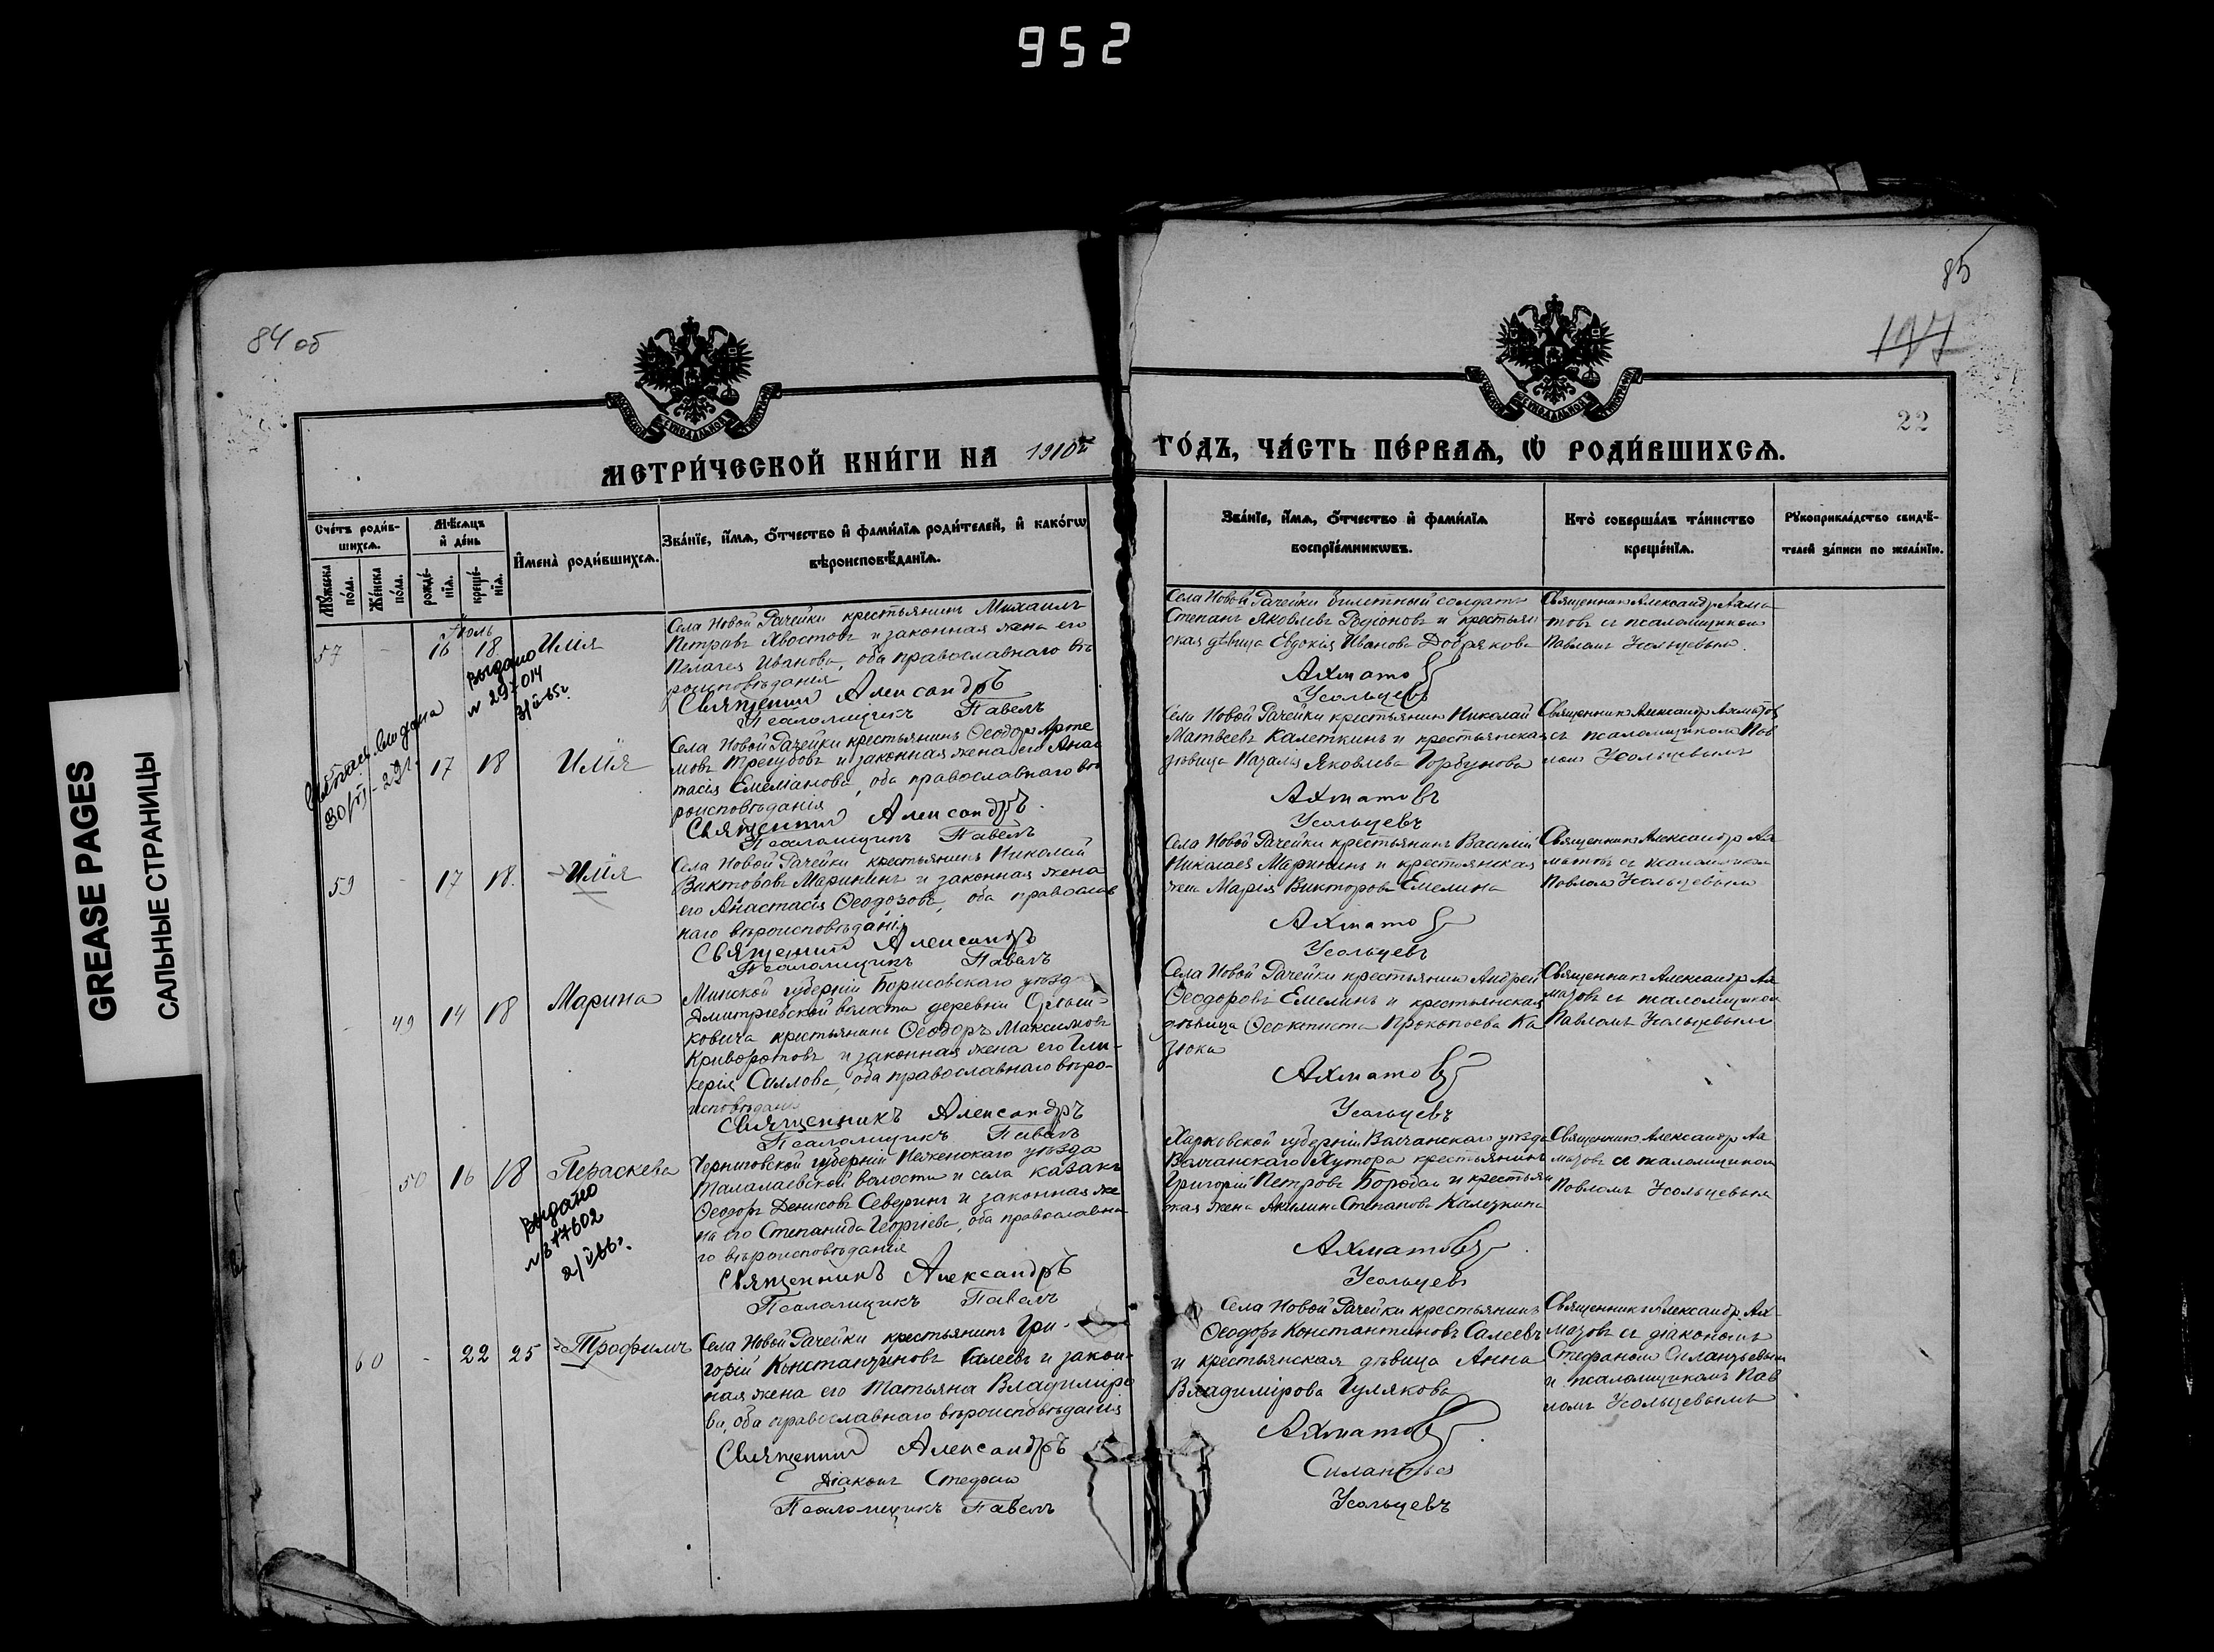 952
GREASE PAGES
САЛЬНЫЕ СТРАНИЦЫ
84 об
85
22
МЕТРИ́ЧЕСКОЙ КНИ́ГИ НА 1910й
ГО́ДЪ, ЧА́СТЬ ПЕ́РВАѦ, Ѡ҆ РОДИ́ВШИХСѦ.
Сче́тъ роди́в-
шихсѧ.
Мꙋ́жеска по́ла.
Же́нска по́ла.
Мѣ́сѧцъ и҆ де́нь
рожде́-нїѧ.
креще́-нїѧ.
И҆мена̀ роди́вшихсѧ.
Зва́нїе, и҆́мѧ, ѻ҆́тчество и҆ фами́лїѧ роди́телей, и҆ како́гѡ
вѣроисповѣ́данїѧ.
Зва́нїе, и҆́мѧ, ѻ҆́тчество и҆ фами́лїѧ
воспрїе́мникѡвъ.
Кто̀ соверша́лъ та́инство
креще́нїѧ.
Рꙋкоприкла́дство свидѣ́-
телей за́писи по жела́нїю.
Іюль
57 - 16 18 Илія
Выдано
№ 297014
Села Новой Рачейки крестьянинъ Михаилъ
Петровъ Хвостовъ и законная жена его
Пелагея Иванова, оба православнаго вѣ
роисповѣданія
Священникъ Александръ
Псаломщикъ Павелъ
Села Новой Рачейки билетный солдатъ
Степанъ Яковлевъ Родіоновъ и крестьян
ская дѣвица Евдокія Иванова Добрякова
Ахматовъ
Усольцевъ
Священникъ Александръ Ахма-
товъ съ псаломщикомъ
Павломъ Усольцевымъ.
выдана
17 18 Илія
Села Новой Рачейки крестьянинъ Ѳеодоръ Арте
мовъ Трегубовъ и законная жена его Анас
тасія Емеліанова, оба православнаго вѣ
роисповѣданія
Священникъ Александръ.
Псаломщикъ Павелъ
Села Новой Рачейки крестьянинъ Николай
Матвѣевъ Калеткинъ и крестьянская
дѣвица Наталія Яковлева Горбунова
Ахматовъ
Усольцевъ
Священникъ Александръ Ахматовъ
съ псаломщикомъ Пав
ломъ Усольцевымъ
59 - 17 18. Илія
Села Новой Рачейки крестьянинъ Николай
Викторовъ Марининъ и законная жена
его Анастасія Ѳеодорова, оба православ
наго вѣроисповѣданія
Священникъ Александръ
Псаломщикъ Павелъ
Села Новой Рачейки крестьянинъ Василій
Николаевъ Марининъ и крестьянская
жена Марія Викторова Емелина
Ахматовъ
Усольцевъ
Священникъ Александръ Ах
матовъ съ псаломщикомъ
Павломъ Усольцевымъ
- 49 14 18 Марина
Минской губерніи Борисовскаго уѣзда
Дмитріевской волости деревни
ковича крестьянинъ Ѳеодоръ Максимовъ
Криворотовъ и законная жена его Гли-
керія Силлова, оба православнаго вѣро-
исповѣданія
Священникъ Александръ
Псаломщикъ Павелъ
Села Новой Рачейки крестьянинъ Андрей
Ѳеодоровъ Емелинъ и крестьянская
дѣвица Ѳеоктиста Прокопьева Ка
зюка
Ахматовъ
Усольцевъ
Священникъ Александръ Ах
матовъ съ псаломщикомъ
Павломъ Усольцевымъ
50 16 18 Параскева
Выдано
№ 377602
Черниговской губерніи Нѣженскаго уѣзда
Талалаевской волости и села казакъ
Ѳеодоръ Денисовъ Северинъ и законная же
на его Степанида Георгіева, оба православна
го вѣроисповѣданія
Священникъ Александръ
Псаломщикъ Павелъ
Харьковской губерніи Волчанскаго уѣзда
Волчанскаго Хутора крестьянинъ
Григорій Петровъ Бородай и крестьян
ская жена Акилина Степанова Калеткина
Ахматовъ
Усольцевъ
Священникъ Александръ Ах
матовъ съ псаломщикомъ
Павломъ Усольцевымъ
60 - 22 25 Трофимъ
Села Новой Рачейки крестьянинъ Гри-
горій Константиновъ Салеевъ и закон-
ная жена его Татьяна Владиміро
ва, оба православнаго вѣроисповѣданія
Священникъ Александръ
Діаконъ Стефанъ
Псаломщикъ Павелъ
Села Новой Рачейки крестьянинъ
Ѳеодоръ Константиновъ Салеевъ
и крестьянская дѣвица Анна
Владимірова Гулякова
Ахматовъ
Силантьев
Усольцевъ
Священникъ Александръ Ах-
матовъ съ діакономъ
Стефаномъ Силантьевымъ
и псаломщикомъ Пав
ломъ Усольцевымъ